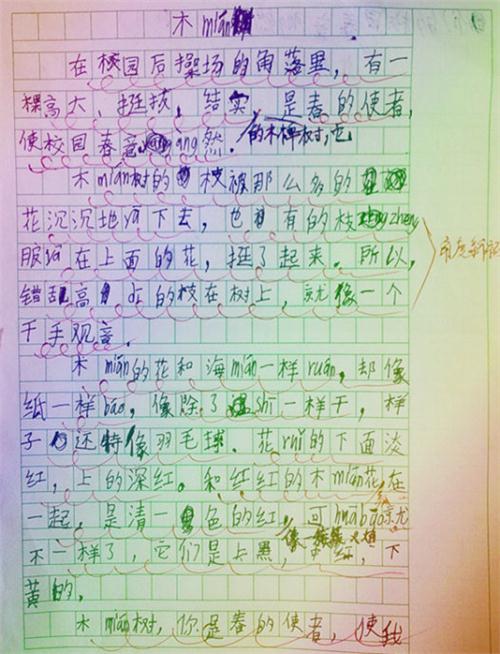 木mián
在校园后操场的角落里，有一
棵高大、挺拔、结实，是春的使者，
使校园春意àng然．的木棉树，它
木mián树的枝被那么多的
花沉沉地yā下去，也有的枝zhēng
服yā在上面的花，挺了起来．所以，
错乱高dī的枝在树上，就像一个
千手观音．
木mián的花和海mián一样ruǎn，却像
纸一样báo，像除了shī一样干，样
子还特像羽毛球．花ruǐ的下面淡
红，上的深红。和红红的木mián花，在
一起，是清一色的红，可huābāo就尤
不一样了，它们是上黑，中红，下
像一簇簇火焰
黄的．
木mián树，你是春的使者，使我